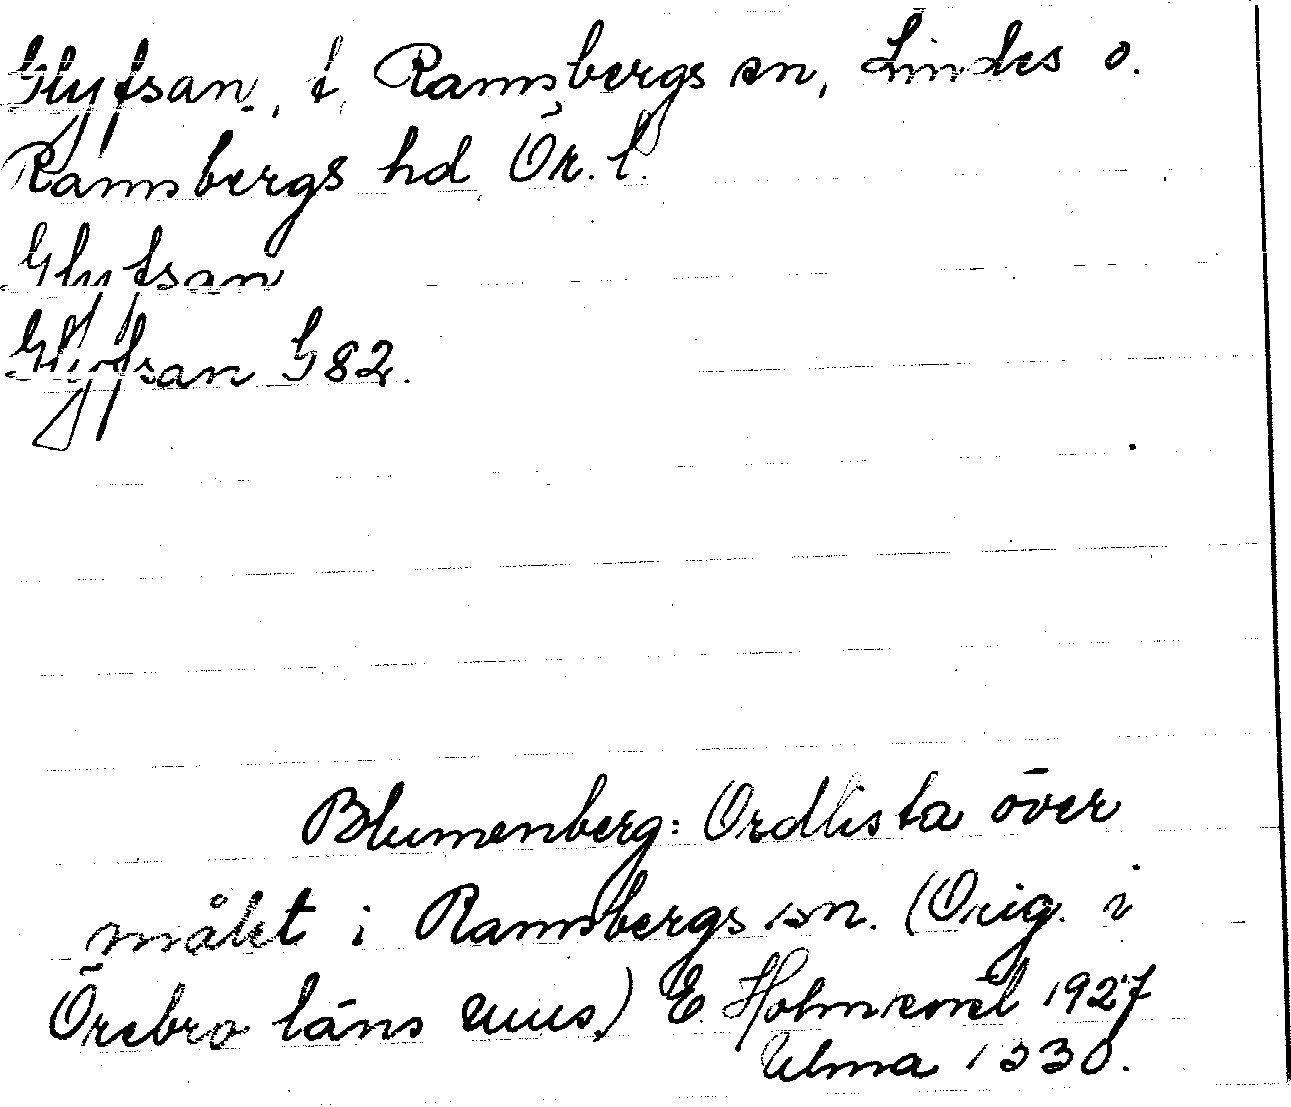 Glyfsan, t, Ramsbergs sn, Lindes o.
Ramsbergs hd Ör. l.
Glyfsan
Glyfsan G 82.
Blumenberg: Ordlista över
målet i Ramsbergs sn. (Orig. i
Örebro läns mus.) E. Holmkvist 1927
Ulma 1330.